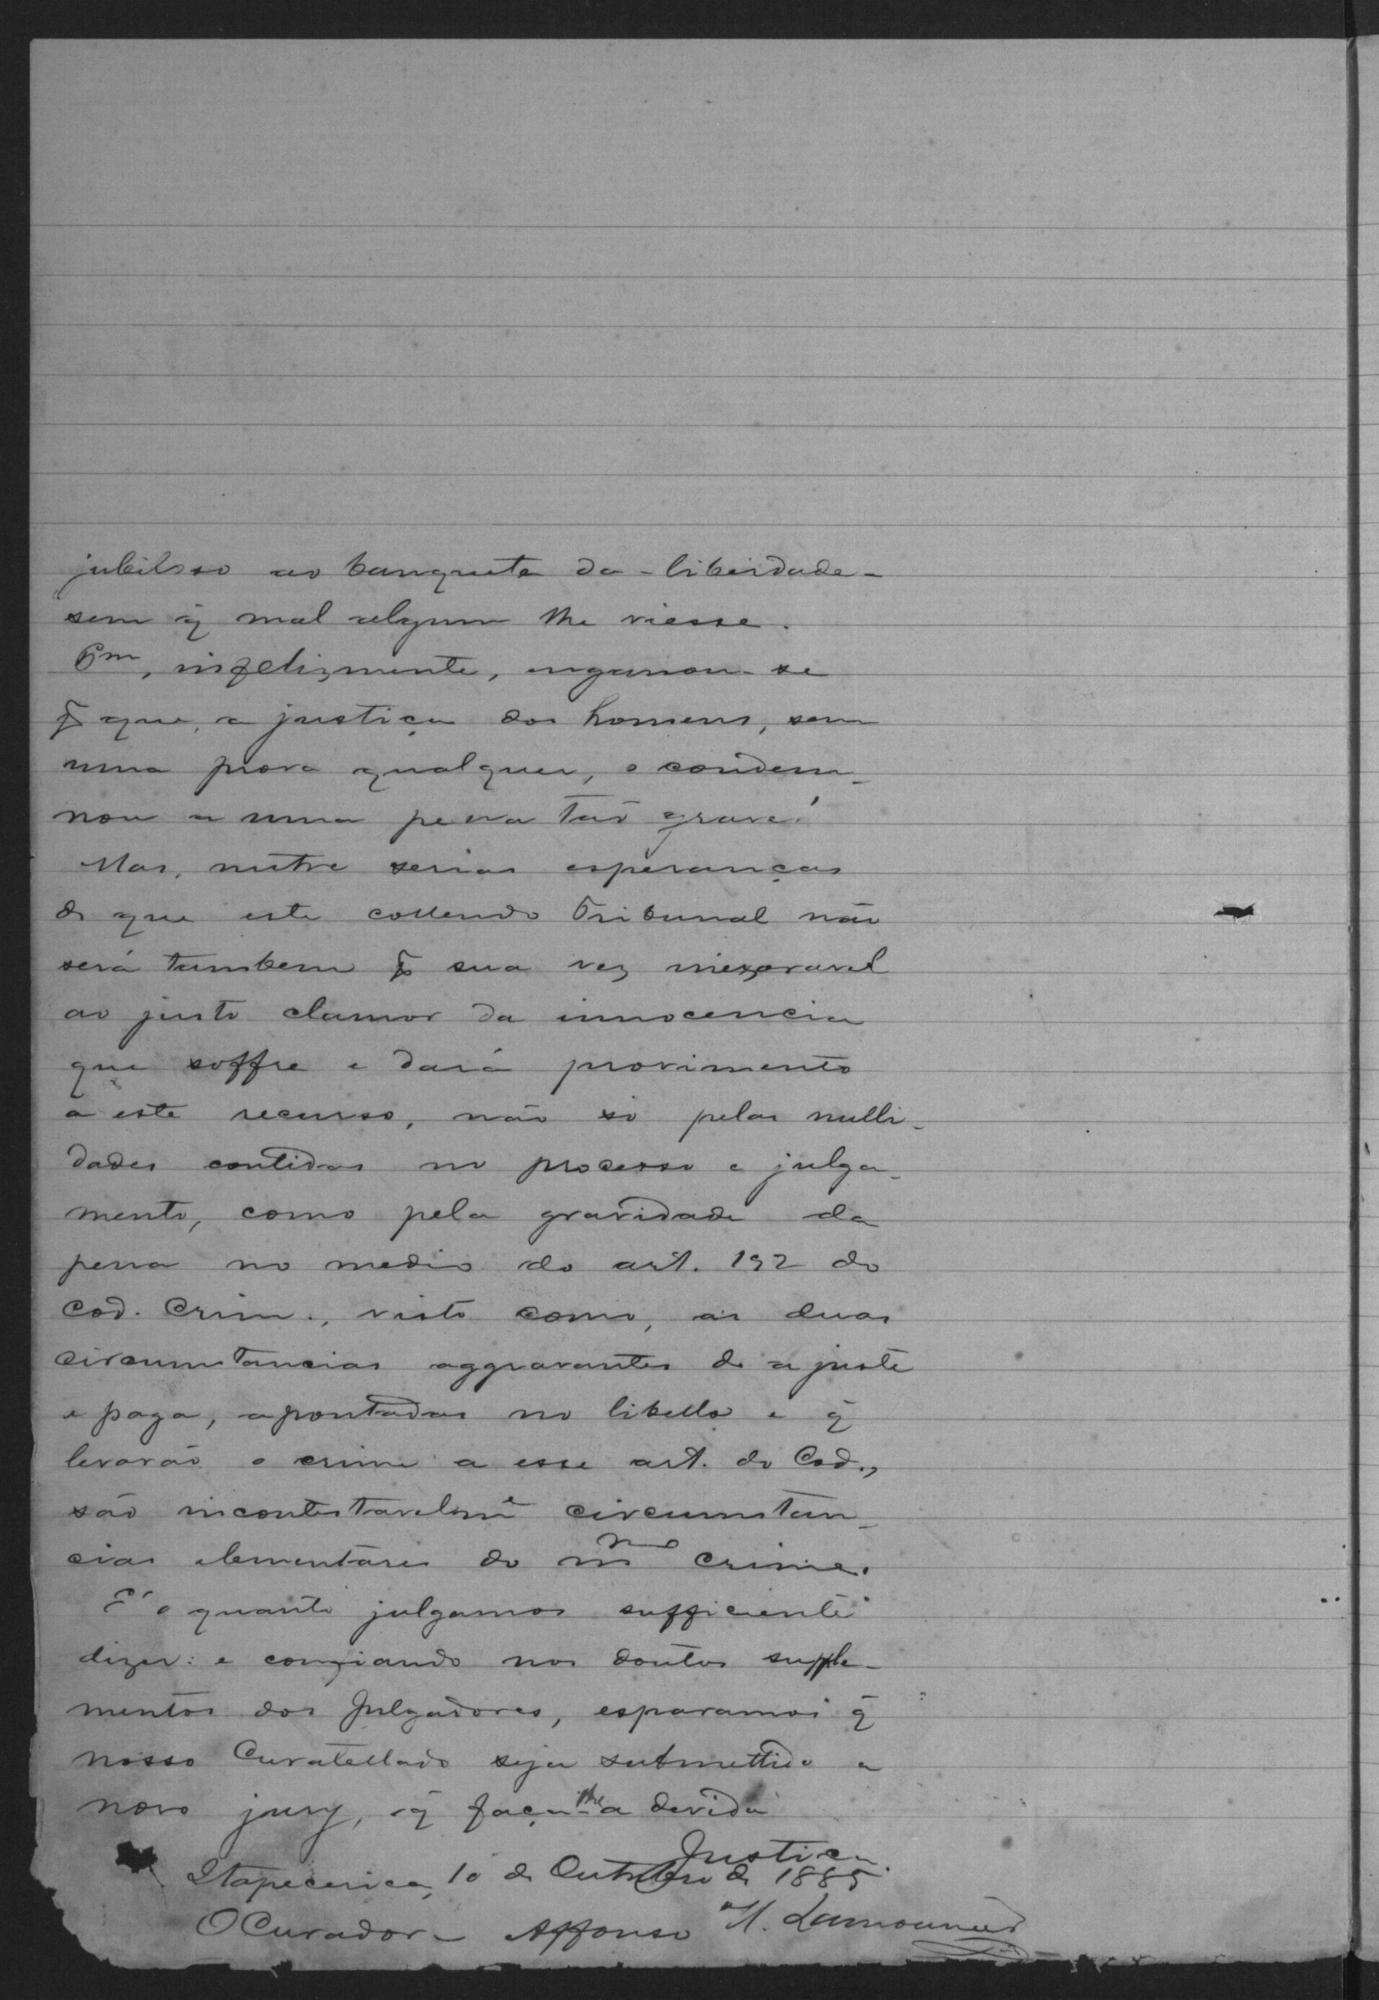 jubiloso ao banquete da - liberdade -
sem q̃ mal algum lhe viesse.
Pm, infelizmente, enganou-se
p̃ que, a justiça dos homens, sem
uma prova qualquer, o condem-
nou a uma pena tão grave!
Mas, nutre serias esperanças
de que este collendo Tribunal não
será tambem p̃ sua vez inexoravel
ao justo clamor da innocencia
que soffre e dará provimento
a este recurso, não só pelas nulli-
dades contidas no processo e julga-
mento, como pela gravidade da
pena no medio do art. 192 do
Cod. Crim., visto como, as duas
circumstancias aggravantes de ajuste
e paga, apontadas no libello e q̃
levarão o crime a esse art. do Cod.,
são incontestavelme circumstan-
cias elementares do mmo crime.
É o quanto julgamos sufficiente
dizer: e confiando nos doutos supple-
mentos dos Julgadores, esparamos q̃
nosso Curatellado seja submettido a
novo jury, q̃ faça-lhe a devida
Justiça.
Itapecerica, 10 de Outubro de 1885
O Curador - Affonso H. Lamounier